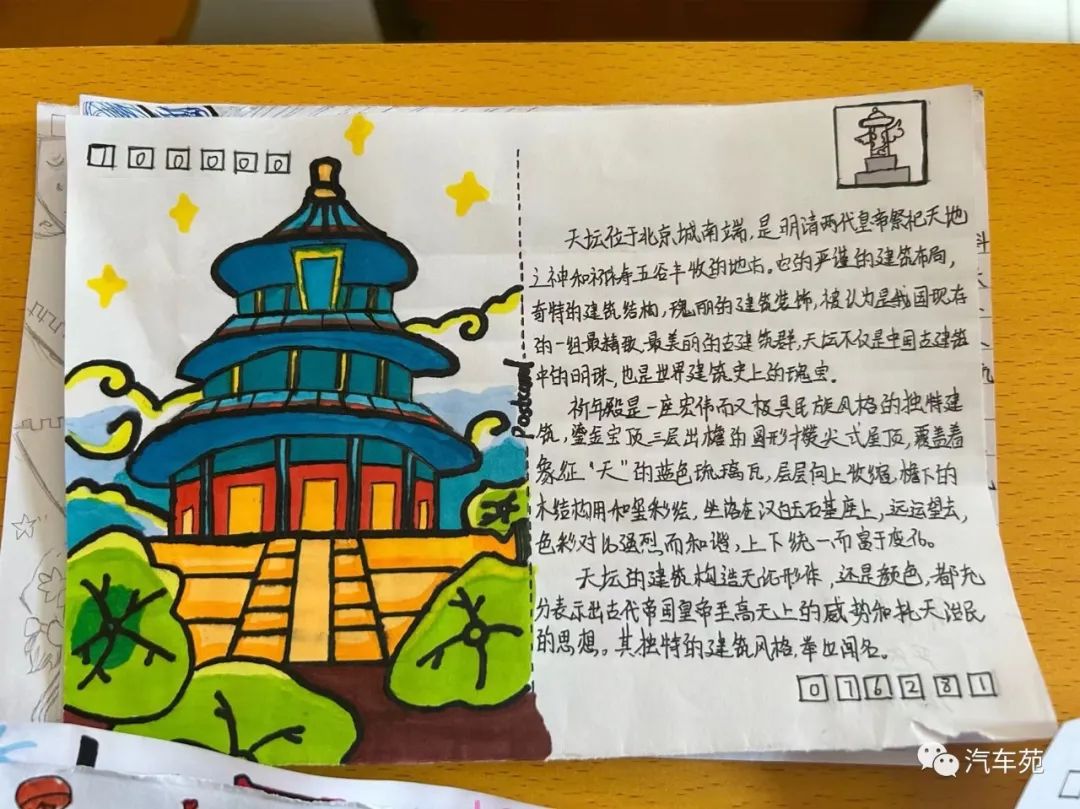 100000
天坛位于北京城南端,是明清两代皇帝祭祀天地
之神和祈祷五谷丰收的地方。它的严谨的建筑布局,
奇特的建筑结构,瑰丽的建筑装饰,被认为是我国现存
的一组最精致,最美丽的古建筑群,天坛不仅是中国古建筑
中的明珠,也是世界建筑史上的瑰宝。
Postcard
祈年殿是一座宏伟而又极具民族风格的独特建
筑,鎏金宝顶三层出檐的圆形攒尖式屋顶,覆盖着
象征“天”的蓝色琉璃瓦,层层向上收缩,檐下的
木结构用和玺彩绘,坐落在汉白玉石基座上,远远望去,
色彩对比强烈而和谐,上下统一而富于变化。
天坛的建筑构造无论形体,还是颜色,都充
分表示出古代帝国皇帝至高无上的威势和扎天治民
的思想。其独特的建筑风格,举世闻名。
076281
汽车苑